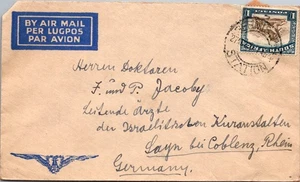 BY AIR MAIL
PER LUGPOS
PAR AVION
SOUTH AFRICA
POSTAGE
STATION
Herren Doktoren
F. und P. Jacoby
Leitende Ärzte
der Israelitischen Kuranstalten
Sayn bei Coblenz, Rhein
Germany.